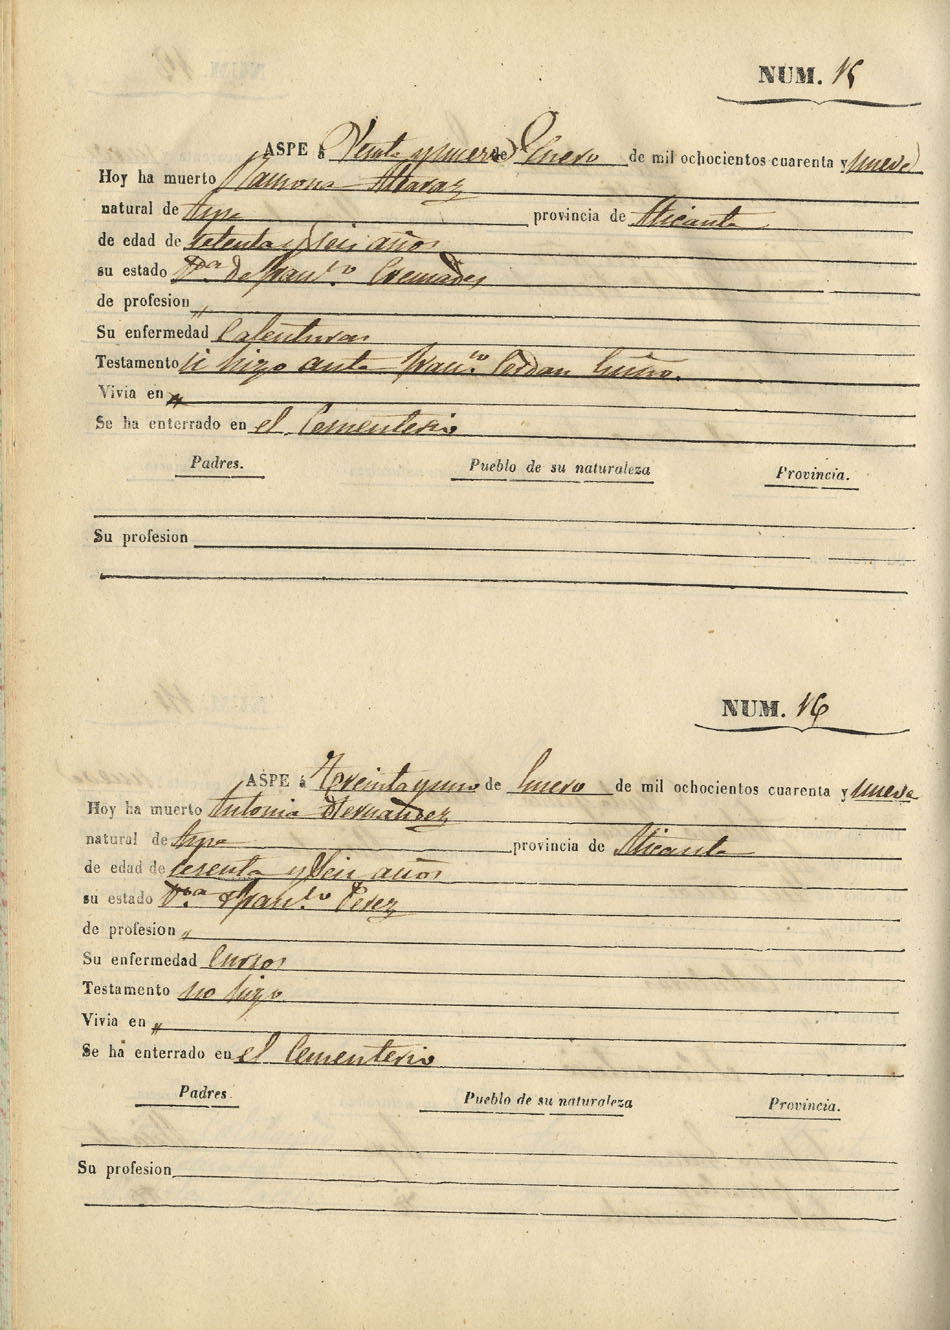 NUM. 15
ASPE á Veinte y nueve de Enero de mil ochocientos cuarenta y nueve
Hoy ha muerto Ramona Alcaraz
natural de Aspe provincia de Alicante
de edad de setenta y seis años
su estado V.ª de Fran.co Cremades
de profesion "
Su enfermedad Calenturas
Testamento si hizo ante Fran.co Cerdan
Vivia en "
Se ha enterrado en el Cementerio
Padres. Pueblo de su naturaleza Provincia.
Su profesion
NUM. 16
ASPE á Treinta y uno de Enero de mil ochocientos cuarenta y nueve
Hoy ha muerto Antonia Hernandez
natural de Aspe provincia de Alicante
de edad de sesenta y seis años
su estado V.ª Fran.co Perez
de profesion "
Su enfermedad Cursos
Testamento no hizo
Vivia en "
Se ha enterrado en el Cementerio
Padres. Pueblo de su naturaleza Provincia.
Su profesion